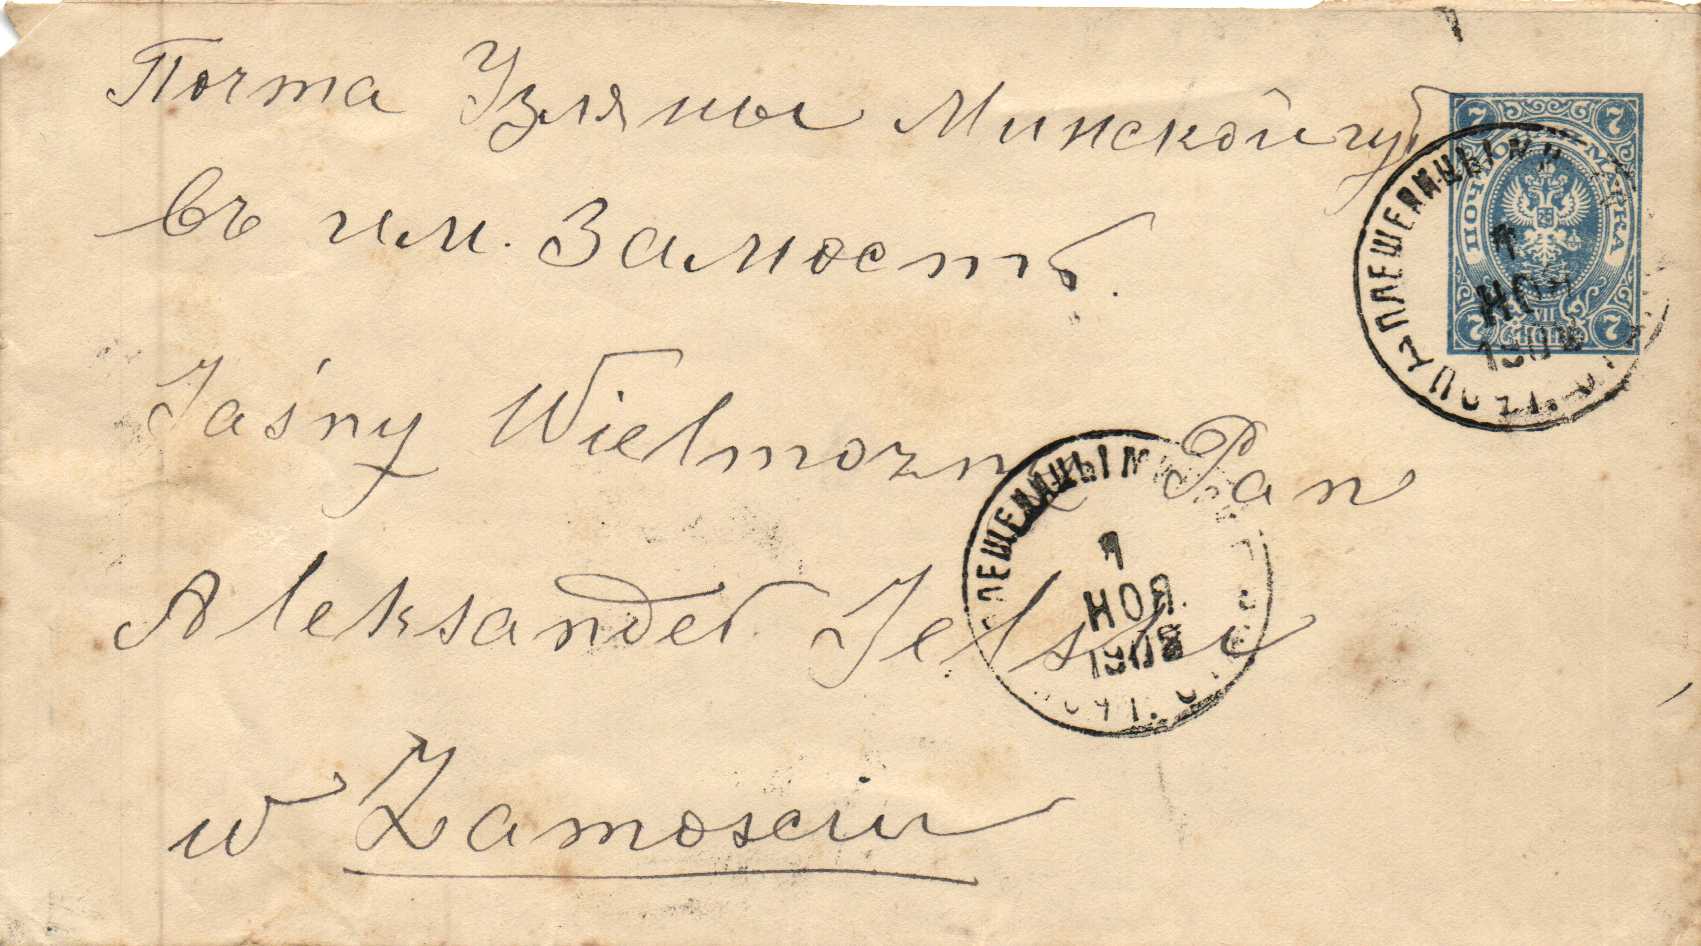 Почта Узляны Минской губ
въ им. Замость.
Jaśny Wielmozny Pan
Aleksander Jelski
w Zamosciu
7 7
ПОЧТОВАЯ МАРКА
7 7
ПЛЕШЕНИЦЫ МИН
1
НОЯ
1908
ПЛЕШЕНИЦЫ МИН
1
НОЯ
1908